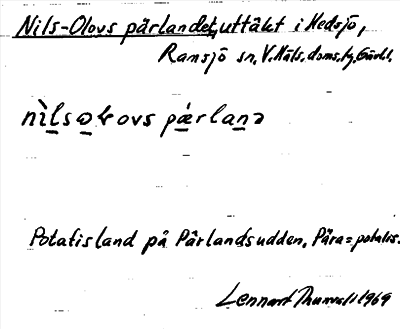 Nils-Olovs pärlandet, uttäkt i Hedsjö,
Ramsjö sn, V. Häls. doms. tg, Gävl.
nìlsəɽovs pǽrlanə
Potatisland på Pärlandsudden. Pära = potatis.
Lennart Thunvall 1969